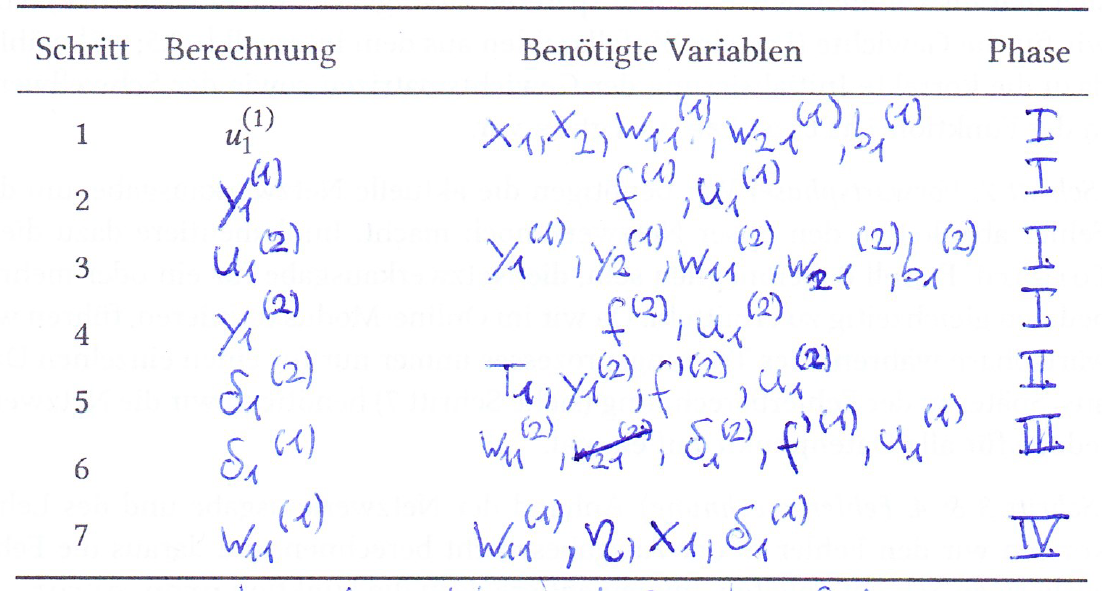 Schritt Berechnung Benötigte Variablen Phase
1 u₁⁽¹⁾ x₁, x₂, w₁₁⁽¹⁾, w₂₁⁽¹⁾, b₁⁽¹⁾ I
2 y₁⁽¹⁾ f⁽¹⁾, u₁⁽¹⁾ I
3 u₁⁽²⁾ y₁⁽¹⁾, y₂⁽¹⁾, w₁₁⁽²⁾, w₂₁⁽²⁾, b₁⁽²⁾ I
4 y₁⁽²⁾ f⁽²⁾, u₁⁽²⁾ I
5 δ₁⁽²⁾ T₁, y₁⁽²⁾, f'⁽²⁾, u₁⁽²⁾ II
6 δ₁⁽¹⁾ w₁₁⁽²⁾, w₂₁⁽²⁾, δ₁⁽²⁾, f'⁽¹⁾, u₁⁽¹⁾ III
7 w₁₁⁽¹⁾ w₁₁⁽¹⁾, η, x₁, δ₁⁽¹⁾ IV